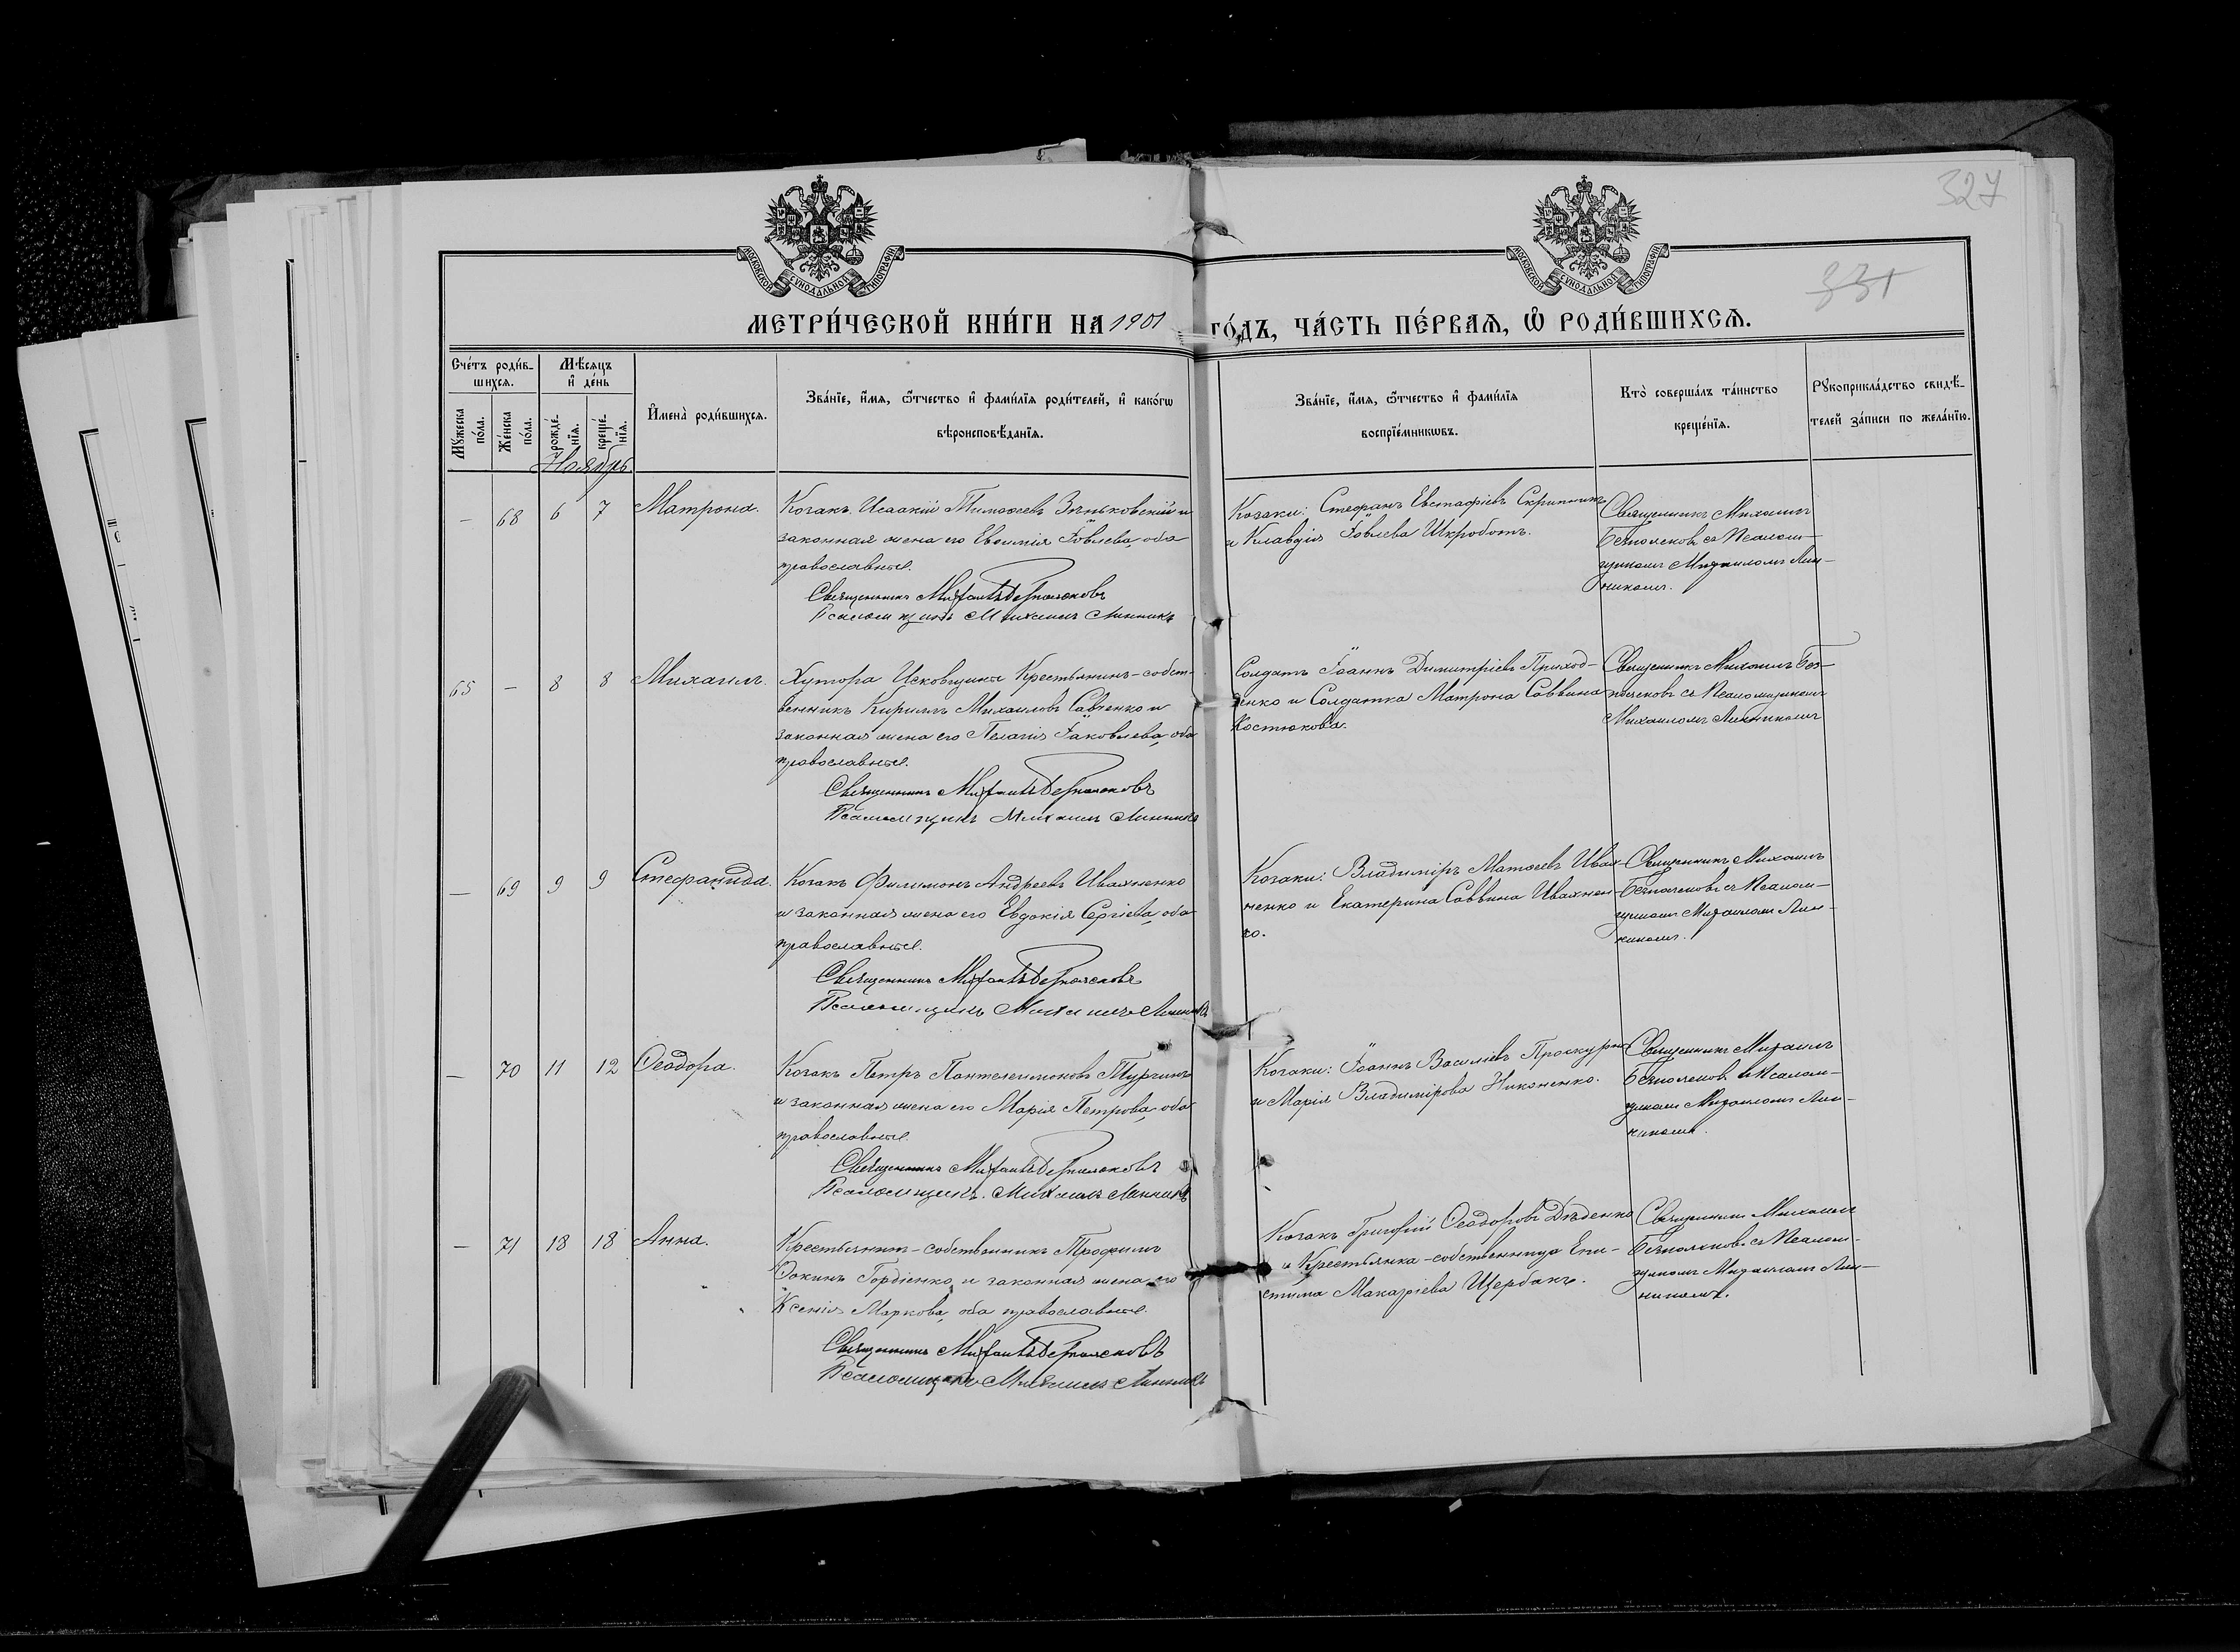 327
331
МОСКОВСКОЙ СѴНОДАЛЬНОЙ ТИПОГРАФІИ
МОСКОВСКОЙ СѴНОДАЛЬНОЙ ТИПОГРАФІИ
МЕТРИ́ЧЕСКОЙ КНИ́ГИ НА 1901 ГО́ДЪ, ЧА́СТЬ ПЕ́РВАѦ, Ѽ РОДИ́ВШИХСѦ.
Сче́тъ роди́в-
шихсѧ.
Мѣ́сѧцъ
и҆ де́нь
Мꙋ́жеска
по́ла.
Же́нска
по́ла.
рожде́-
нїѧ.
креще́-
нїѧ.
Ноябрь
И҆мена̀ роди́вшихсѧ.
Зва́нїе, и҆́мѧ, ѻ҆́тчество и҆ фами́лїѧ роди́телей, и҆ како́гѡ
вѣроисповѣ́данїѧ.
Зва́нїе, и҆́мѧ, ѻ҆́тчество и҆ фами́лїѧ
воспрїе́мникѡвъ.
Кто̀ соверша́лъ та́инство
креще́нїѧ.
Рꙋкоприкла́дство свидѣ́-
телей за́писи по жела́нїю.
— 68 6 7 Матрона.
Козакъ Исаакій Тимоѳеевъ Зѣньковскій и
законная жена его Евѳимія Іовлева, оба
православные.
Священникъ Михаилъ Безполсковъ
Псаломщикъ Михаилъ Линникъ
Козаки: Стефанъ Евстафіевъ Скрипникъ
и Клавдія Іовлева Шкроботъ.
Священникъ Михаилъ
Безполсковъ съ Псалом-
щикомъ Михаиломъ Лин-
никомъ.
65 — 8 8 Михаилъ.
Хутора Исковщины Крестьянинъ-собст-
венникъ Кириллъ Михаиловъ Савченко и
законная жена его Пелагія Іаковлева, оба
православные.
Священникъ Михаилъ Безполсковъ
Псаломщикъ Михаилъ Линникъ
Солдатъ Іоаннъ Димитріевъ Приход-
ченко и Солдатка Матрона Саввина
Костюкова.
Священникъ Михаилъ Без-
полсковъ съ Псаломщикомъ
Михаиломъ Линникомъ
— 69 9 9 Стефанида.
Козакъ Филимонъ Андреевъ Ивахненко
и законная жена его Евдокія Сергіева, оба
православные.
Священникъ Михаилъ Безполсковъ
Псаломщикъ Михаилъ Линникъ
Козаки: Владиміръ Матѳеевъ Ивах-
ненко и Екатерина Саввина Ивахнен-
ко.
Священникъ Михаилъ
Безполсковъ съ Псалом-
щикомъ Михаиломъ Лин-
никомъ.
— 70 11 12 Ѳеодора.
Козакъ Петръ Пантелеимоновъ Турчинъ
и законная жена его Марія Петрова, оба
православные.
Священникъ Михаилъ Безполсковъ
Псаломщикъ Михаилъ Линникъ
Козаки: Іоаннъ Василіевъ
и Марія Владимірова Никоненко.
Священникъ Михаилъ
Безполсковъ съ Псалом-
щикомъ Михаиломъ Лин-
никомъ.
— 71 18 18 Анна.
Крестьянинъ-собственникъ Трофимъ
Ѳокинъ Гордіенко и законная жена его
Ксенія Маркова, оба православные.
Священникъ Михаилъ Безполсковъ
Псаломщикъ Михаилъ Линникъ
Козакъ Григорій Ѳеодоровъ Дѣденко
и Крестьянка-собственница Епи-
стима Макаріева Щербакъ.
Священникъ Михаилъ
Безполсковъ съ Псалом-
щикомъ Михаиломъ Лин-
никомъ.